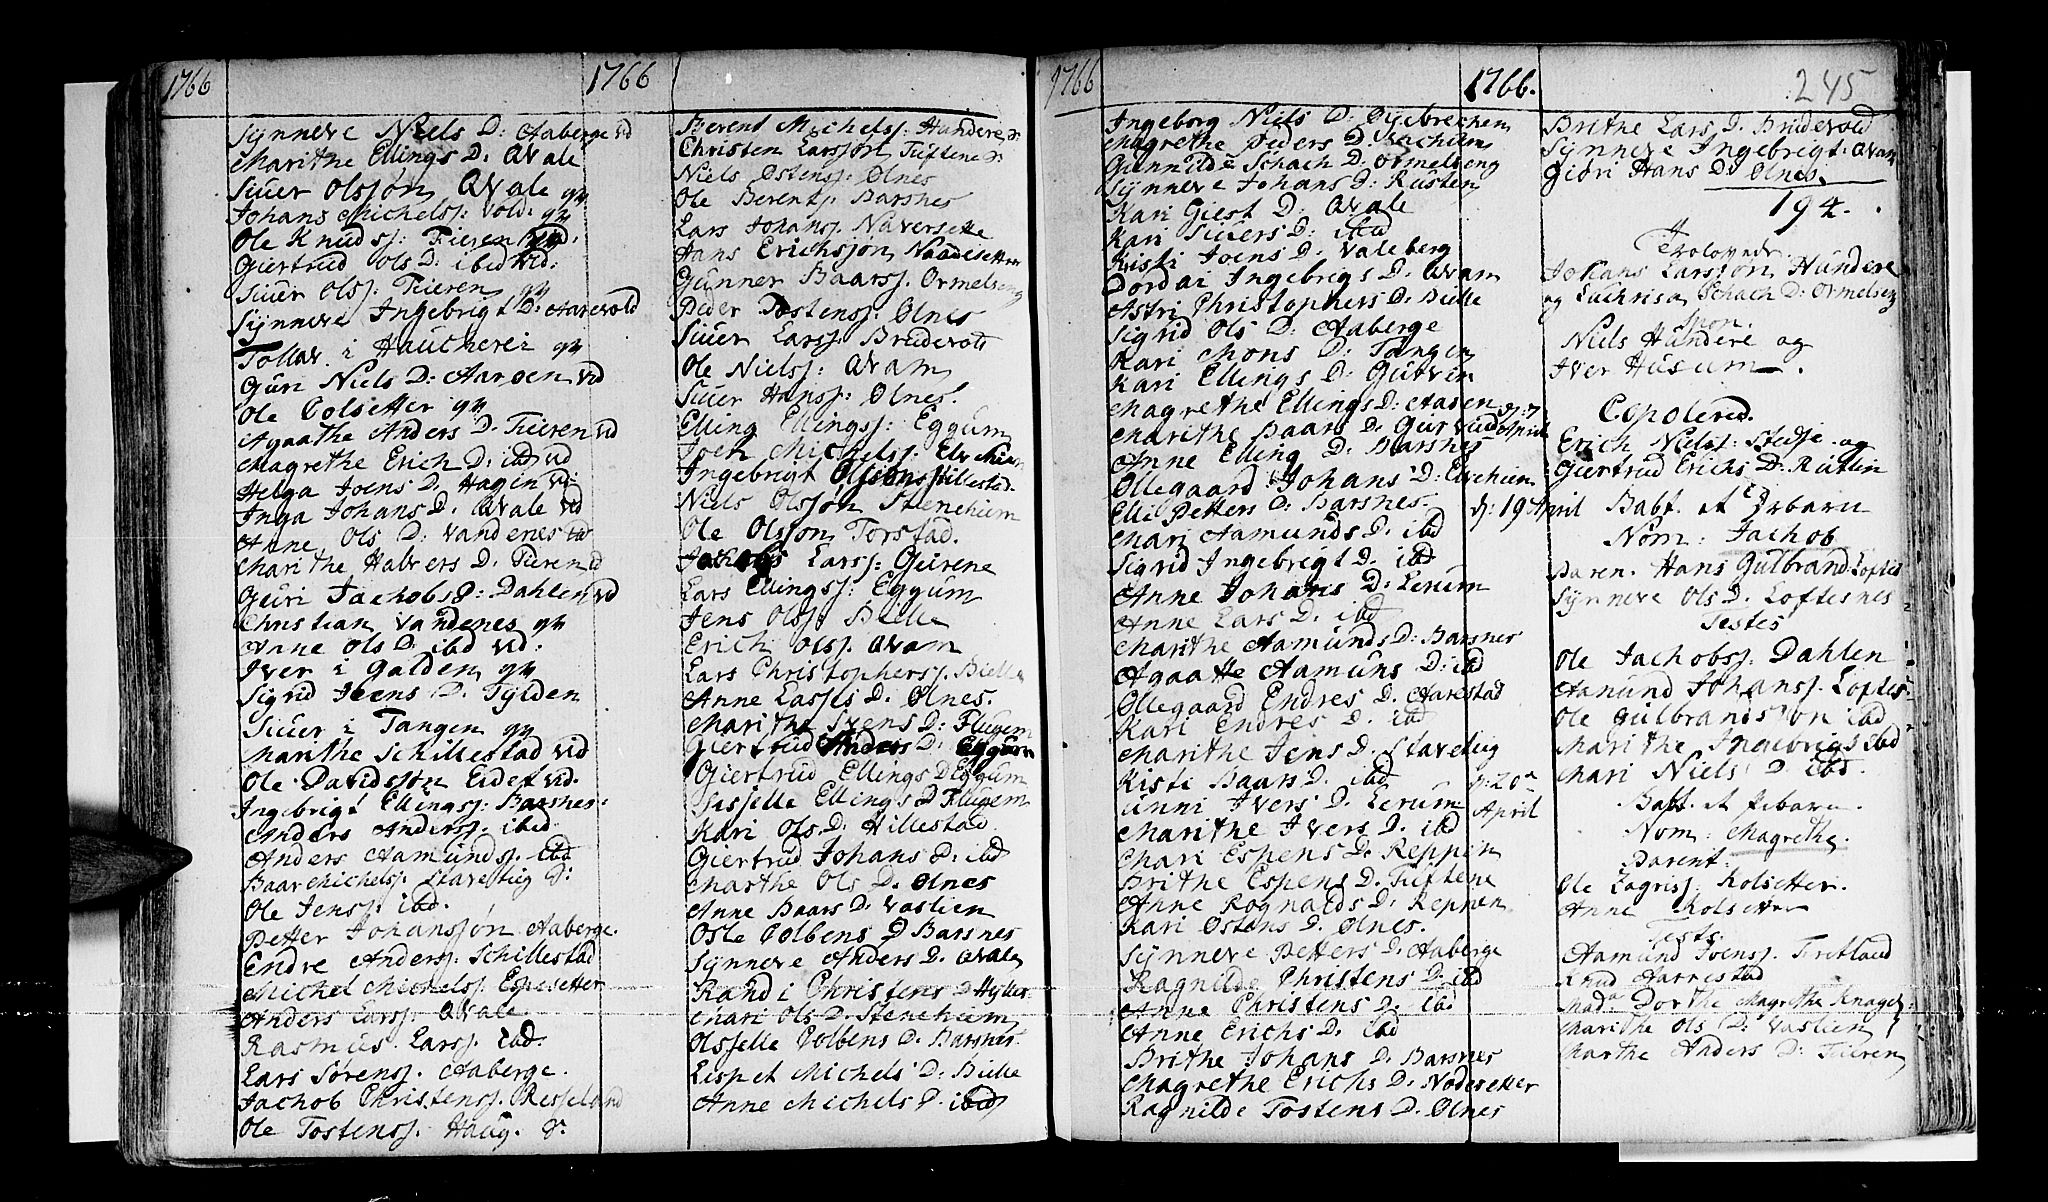 1766
1766
Synneve Niels D: Aaberge vd
Marithe Ellings D: Qvale
Siuer Olssøn Qvale
Johans Michelss: Vold:
Ole Knuds: Fieren
Giertrud Ols D: ibid vid:
Siuer Olss: Fieren
Synneve Ingebrigt D: Aarevold
Tollav i Haucherei
Guri Niels D: Aarøen vid
Ole Colsetter
Agaathe Anders D. Fieren vd
Magrethe Erich D: ibd vd
Helga Joens D. Hagen vi:
Inga Johans D. Qvale vd
Anne Ols D: Vandenes vd
Marithe Halvers D. Fieren vd
Guri Jachobs D: Dahlen vd
Christian Vandenes
Anne Ols D: ibd vid:
Iver i Galden
Sigrid Joens D. Tylden
Siuer i Tangen
Marithe Schillestad vid
Ole Davidssøn Eidet vid.
Ingebrigt Ellingss: Barsnes:
Anders Anderss: ibid:
Anders Aamundss. ibd
Baar Michelss. Stavestig D:
Ole Jenss: ibd.
Petter Johanssøn Aaberge.
Endre Anderss: Schillestad
Michel Michelss: Espesetter
Anders Larss: Qvale
Rasmus Larss. ibd.
Lars Sørenss. Aaberge.
Jachob Christenss. Resseland
Ole Tostenss. Haug. D:
Berent Michelss: Hundere
Christen Larssøn Tuftene
Niels Ostenss: Olnes
Ole Berentss. Barsnes
Lars Johanss. Naversette
Hans Erichssøn Naadesetter
Gunner Baarss. Ormelseng
Peder Tostenss. Olnes
Siuer Larss. Brudevold
Ole Nielss: Qvam
Siuer Hanss: Olnes.
Elling Ellingss: Eggum
Joen Michelss: Elvehiem
Ingebrigt Olssøns Hillestad.
Niels Olssøn Stenehiem
Ole Olssøn Torstad.
Larss: Geirene
Lars Ellingss: Eggum
Jens Olss: Bielle
Erich Olss. Qvam
Lars Christopherss. Bielle
Anne Lasses D. Olnes.
Marithe Svens D: Flugem
Giertrud Anders D. Eggum
Giertrud Ellings D Eggum
Sisselle Ellings D Flugem
Kari Ols D. Hillestad
Giertrud Johans D: ibd
Marthe Ols D. Olnes
Anne Baars D. Vastien
Osle Colbens D Barsnes
Synneve Anders D. Qvale
Randi Christens D Hylles
Mari Ols D. Stenehiem
Olsselle Colbens D. Barsnes
Lispet Michels D: Bielle
Anne Michels D. ibid
1766
1766.
245
Ingeborg Niels D: Dyebrechen
Magrethe Peders D.
Gunnilde Schach D: Ormelseng
Synneve Johans D: Rusten
Kari Giest D: Qvale
Kari Siuers D: ibid
Kisti Joens D: Valeberg
Dordai Ingebrigs D. Qvam
Astri Christophers D. Bielle
Sigrid Ols D: Aaberge
Kari Mons D: Tangen
Kari Ellings D: Gutvin
Magrethe Ellings D: Aasen
Marithe Baars D. Gurvin
Anne Elling D. Barsnes
Ollegaard Johans D: Elvehiem
Elli Petters D. Barsnes.
Mari Aamunds D. ibd
Sigrid Ingebrigt D. ibd
Anne Johans D: Lerum
Anne Lars D. ibd
Marithe Aamunds D: Barsnes
Agaatte Aamuns D: ibd
Ollegaard Endres D. Aarestad
Kari Endres D. ibd
Marithe Jens D: Stavestig
Kisti Baars D. ibd
Unni Ivers D. Lerum
Marithe Ivers D. ibd
Mari Espens D. Reppen
Brithe Espens D. Tuftene
Anne Rognalds D. Reppen
Kari Ostens D. Olnes.
Synneve Petters D. Aaberge
Ragnilde Christens D. ibd
Anne Christens D. ibd
Anne Erichs D. ibd
Brithe Johans D. Barsnes
Magrethe Erichs D: Nodesetter
Ragnilde Tostens D. Olnes
d: 7 April
d: 19 April
d: 20 April
Brithe Lars D. Brudevold
Synneve Ingebrigt: Qvam
Giøri Hans D: Olnes
194.
Trolovede
Johans Larssøn Hundere
og Luchrisa Schach D: Ormelseng
Spon.
Niels Hundere og
Iver Husum.
Copolered.
Erich Nielss: Stedje og
Giertrud Erichs D. Rutlin
Babt. et
Nom: Jachob
Paren. Hans Gulbrand Loftes
Synneve Ols D. Loftesnes
Testes
Ole Jachobss. Dahlen
Aamund Johanss. Loftes
Ole Gulbrandssøn ibd
Marithe Ingebrigs ibd
Mari Niels D ibd.
Babt. et
Nom: Magrethe.
Parent:
Ole Zagriss: Kolsetter.
Anne Kolsetter
Tests
Aamund Joenss. Fretland
Knud Aarrestad
Mad. Dorthe Magrethe Knagen:
Marithe Ols D: Vastien
Marthe Anders D: Fieren